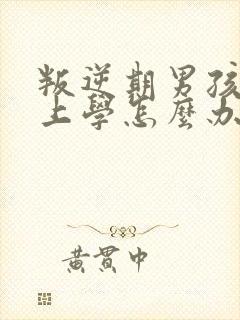 叛逆期男孩
上學怎麼办
黃貫中